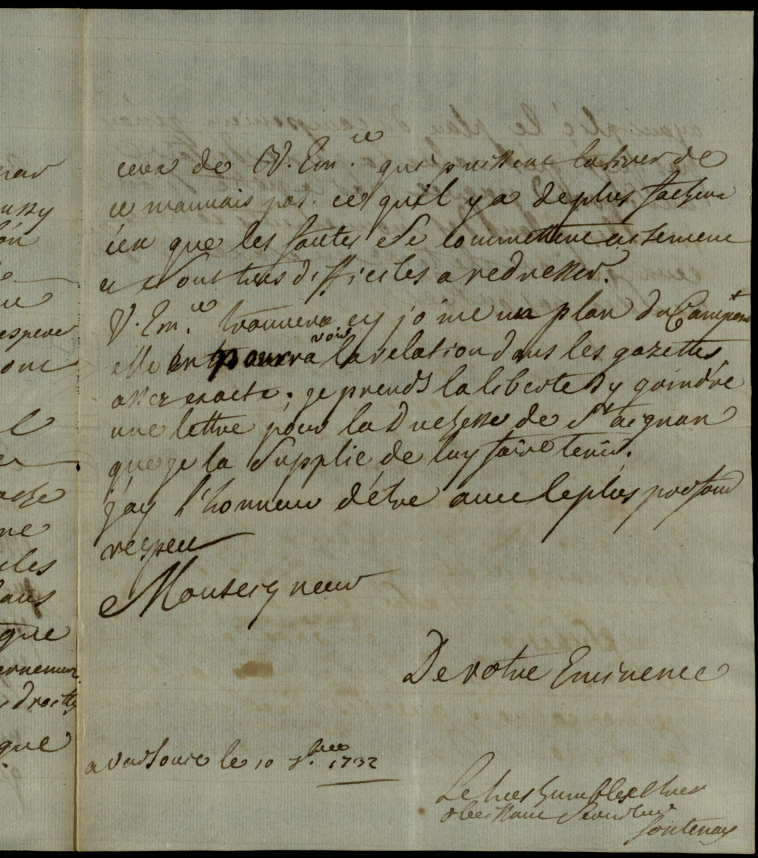 ceux de V. Em.ce qui puissent la tirer de
ce mauvais pas. ce qu'il y a de plus facheux
c'en que les fautes se commettent aisement
et sont tres difficiles a redresser.
V. Em.ce trouvera cy joint un plan du Campemt
elle en pourra voir la relation dans les gazettes
assez exacte; je prends la liberte d'y joindre
une lettre pour la Duchesse de St aignan
que je la supplie de luy faire tenir.
j'ay l'honneur d'être avec le plus profond
respect
Monseigneur
De votre Eminence
a Varsovie le 10 7.bre 1732
Le tres humble et tres
obeissant serviteur
fontenay